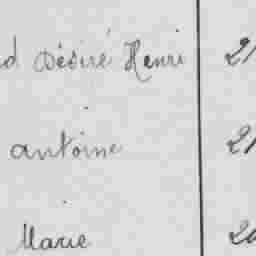 Désiré Henri 21
antoine 21
Marie